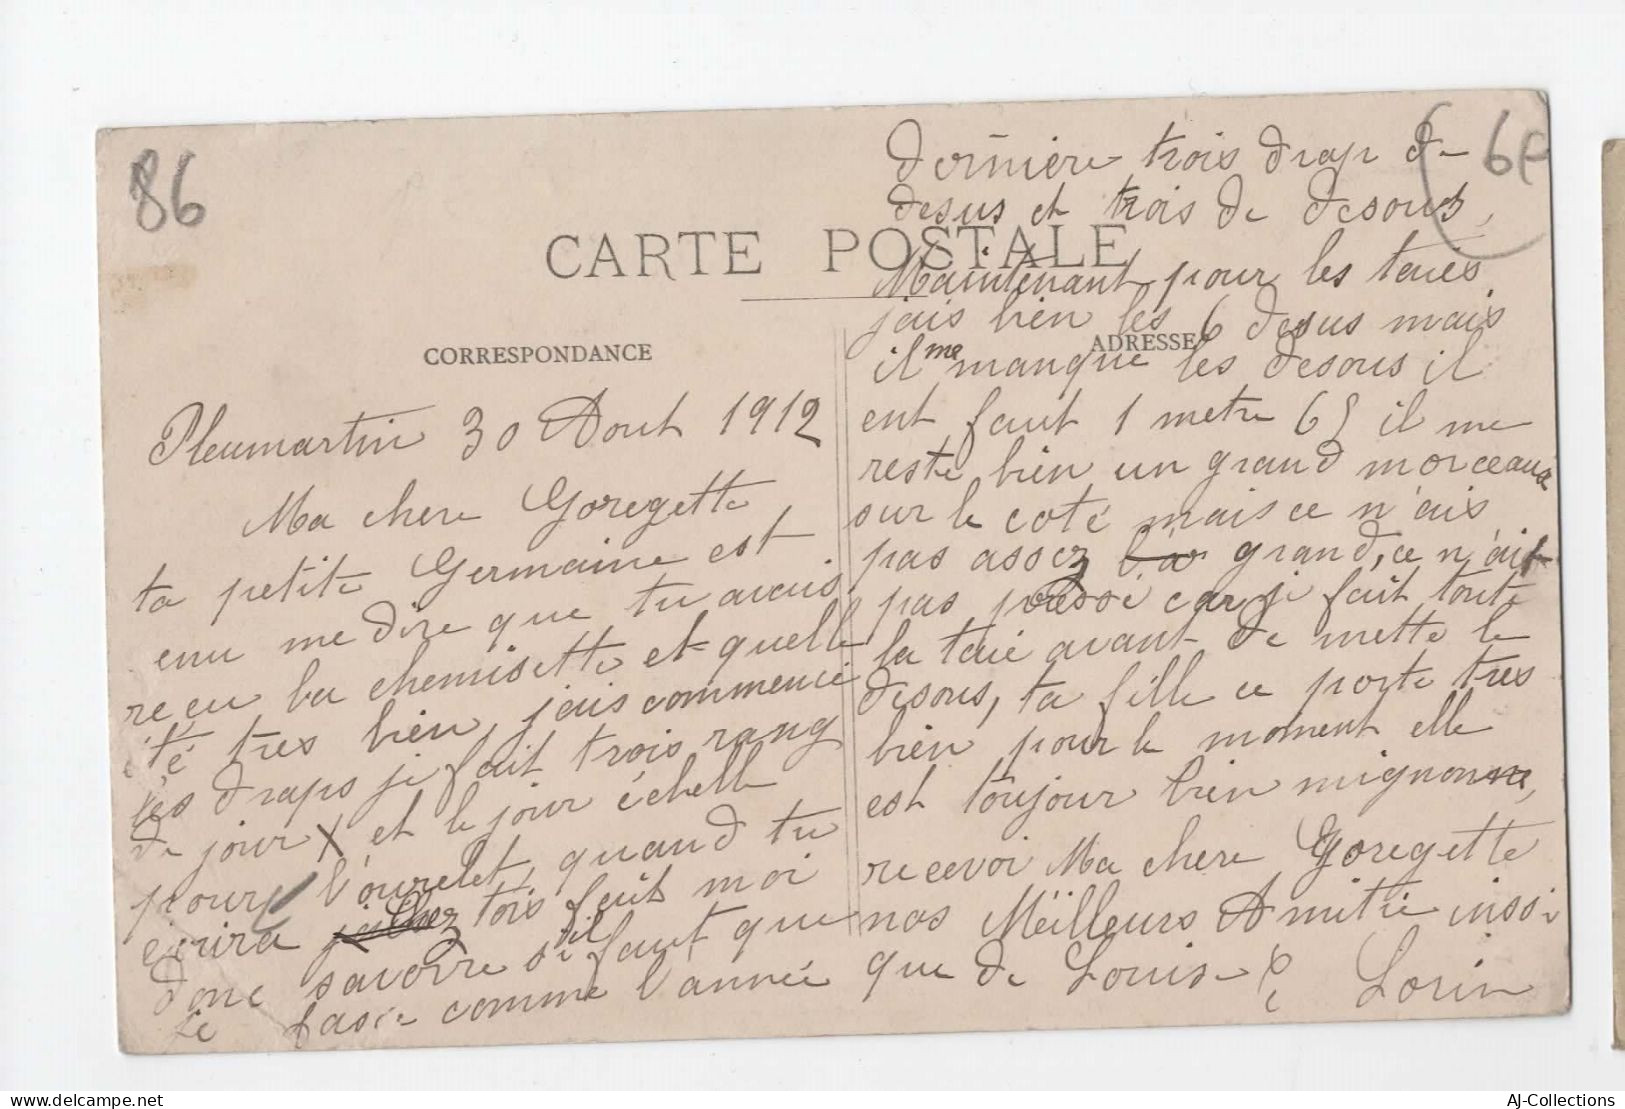 86
6€
CARTE POSTALE
CORRESPONDANCE
ADRESSE
Pleumartin 30 Aout 1912
Ma chere Goregette
ta petite Germaine est
venu me dire que tu avais
recu la chemisette et quelle
été tres bien, jais commencé
les draps je fait trois rang
de jour X et le jour échelle
pour l'ourelet, quand tu
ecrira tois fait moi
donc savoire s'il faut que
je fasse comme l'année
dernière trois drap de
desus et trois de desous,
Maintenant pour les taies
jais bien les 6 desus mais
il me manque les desous il
ent faut 1 metre 65 il me
reste bien un grand morceaux
sur le coté mais ce n'ais
pas assez grand, ce n'ait
pas pressé car je fait toute
la taie avant de mette le
desous, ta fille ce porte tres
bien pour le moment elle
est toujour bien mignonne,
recevoi Ma chere Goregette
nos Meilleurs Amitié inssi
que de Louise
Lorin
AJ-Collections
delcampe.net